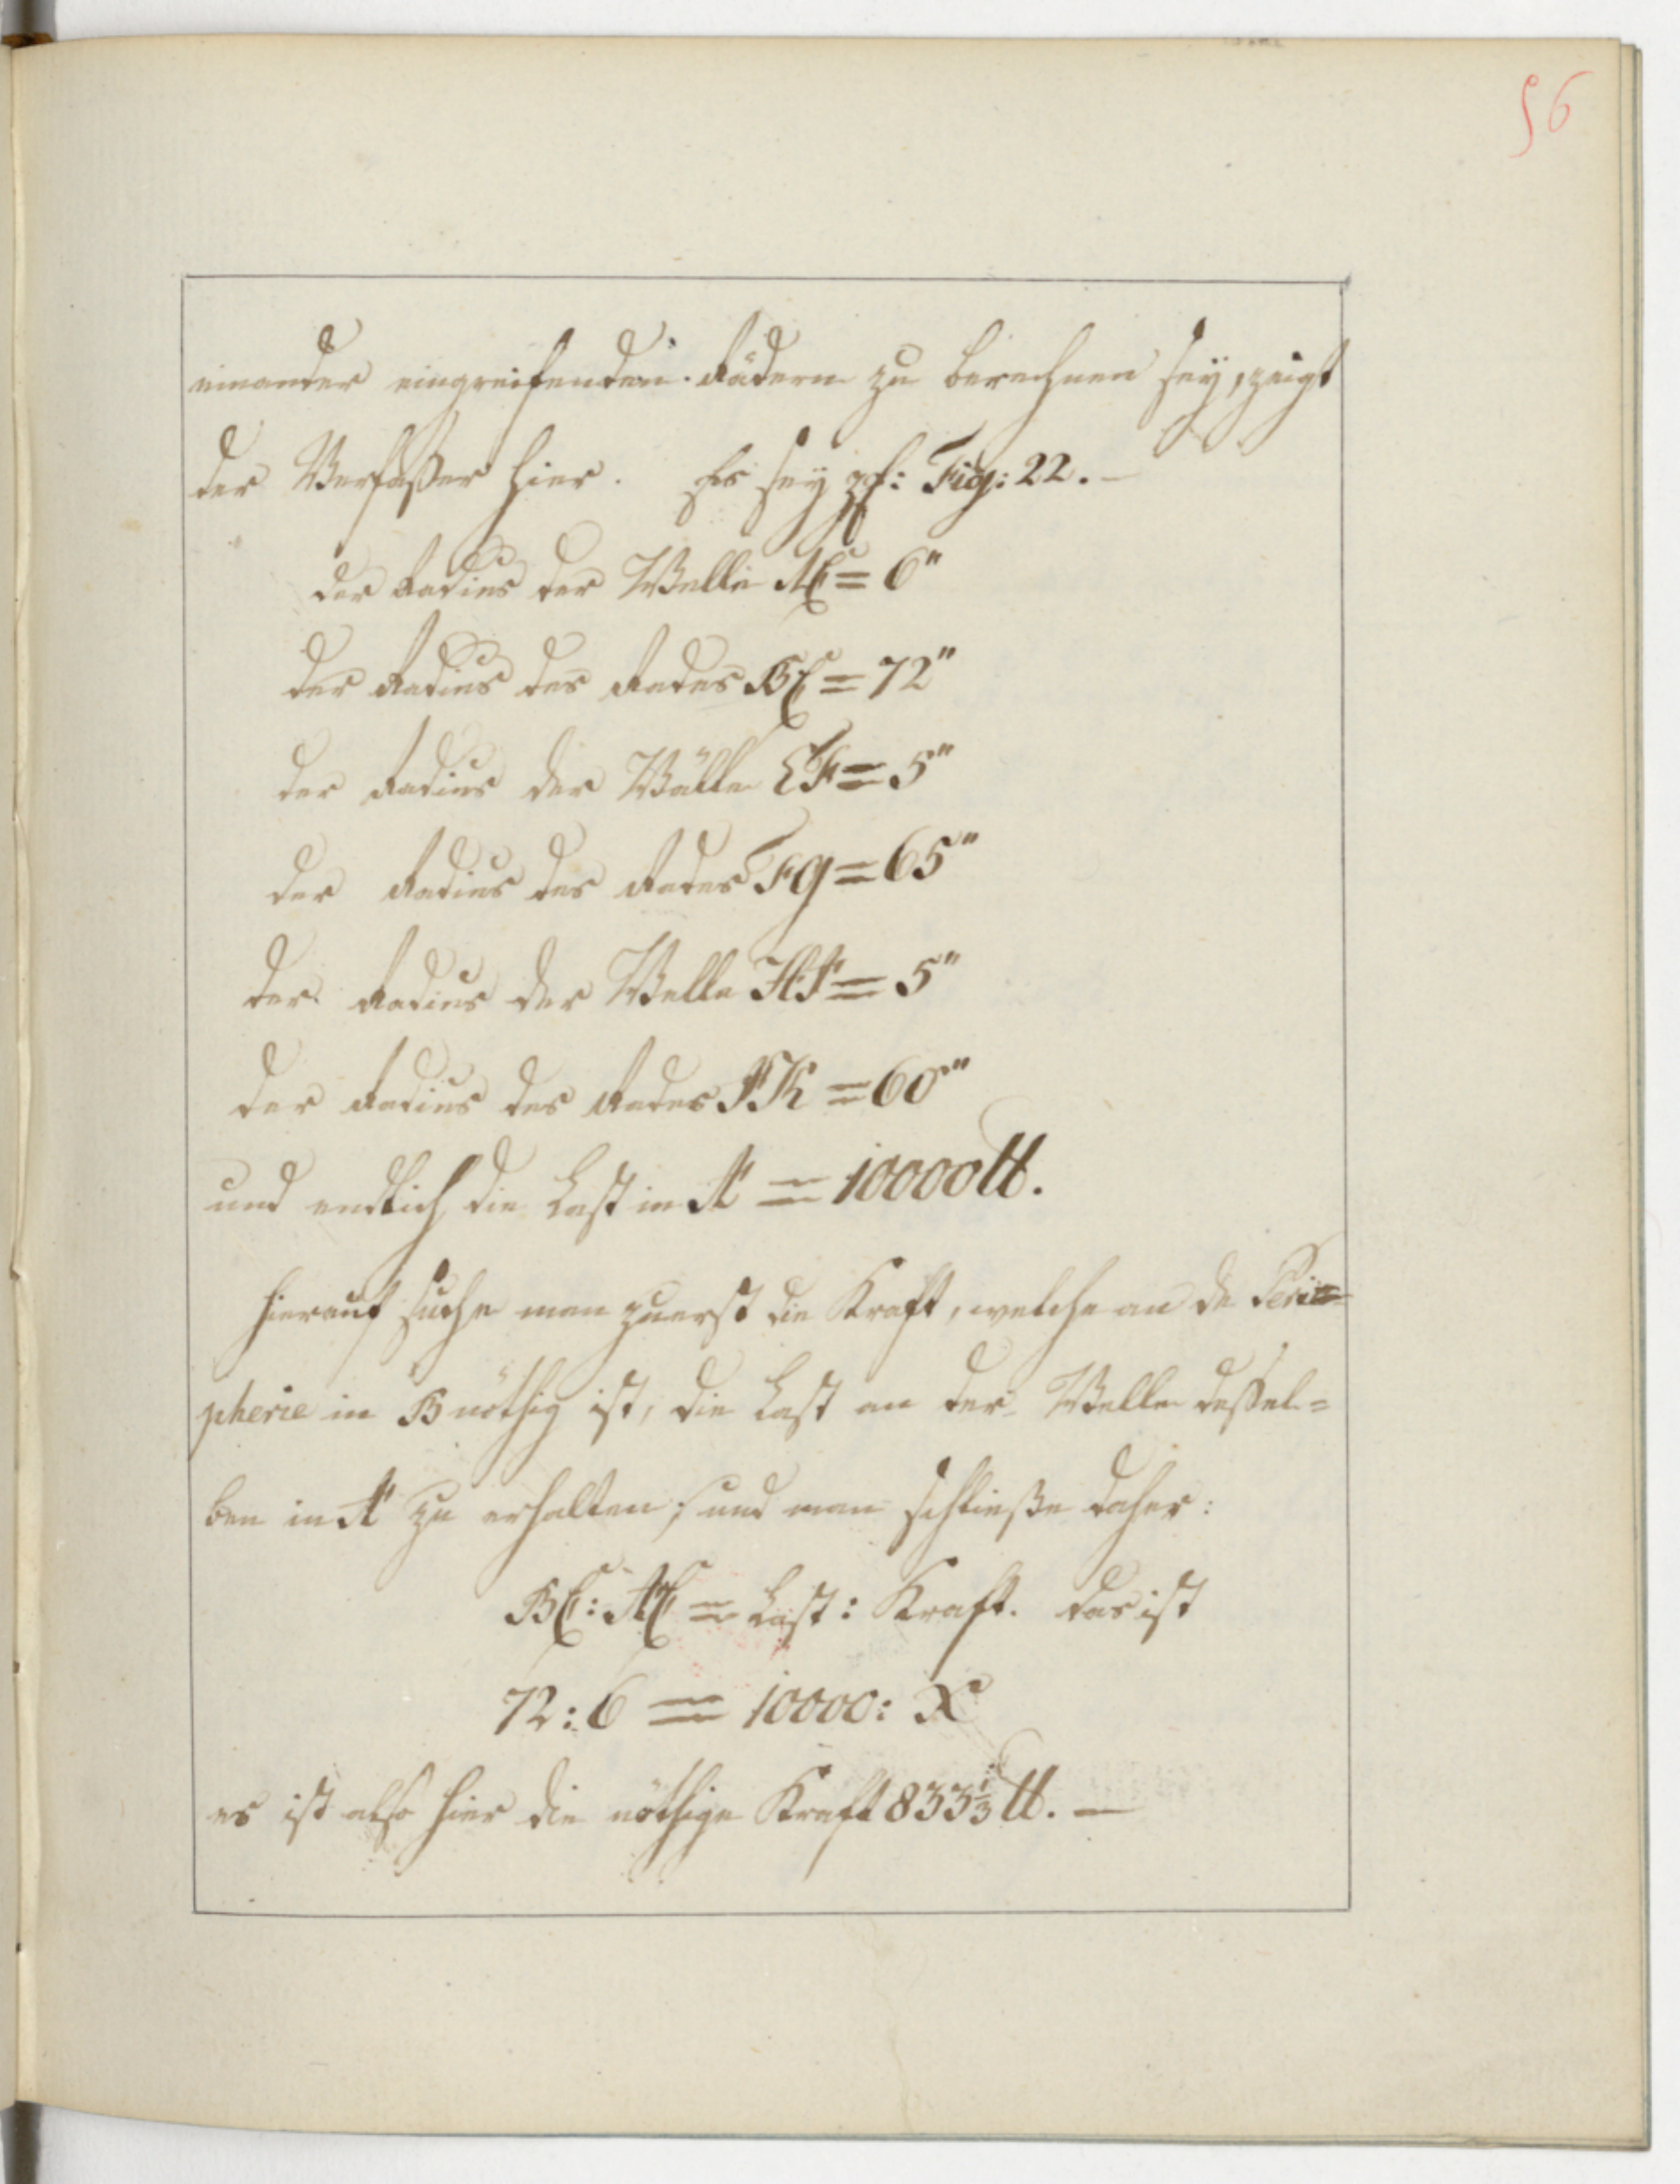 56
einander eingreifenden Rädern zu berechnen sey, zeigt
der Verfaßer hier. Es sey zf: Fig: 22. —
der Radius der Welle AC = 6"
der Radius des Rades BC = 72"
der Radius der Wälle EF = 5"
der Radius des Rades FG = 65"
der Radius der Welle HI = 5"
der Radius des Rades IK = 60"
und endlich die Last in A = 10000 ℔.
hierauf suche man zuerst die Kraft, welche an de Peri=
pherie in B nöthig ist, die Last an der Welle deßel=
ben in A zu erhalten; und man schließe daher:
BC: AC = Last: Kraft. das ist
72: 6 = 10000: X
es ist also hier die nöthige Kraft 833 1/3 ℔. —